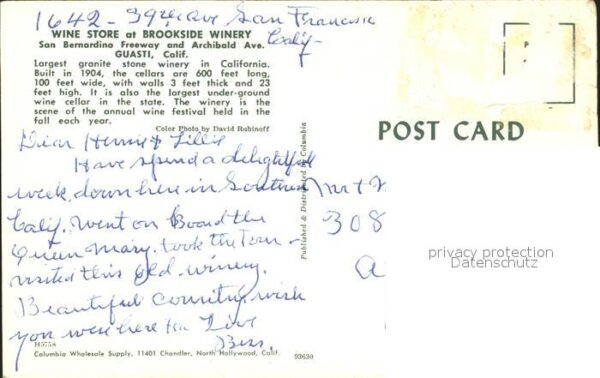 1642 - 39th ave San Francisco
Calif-
WINE STORE at BROOKSIDE WINERY
San Bernardino Freeway and Archibald Ave.
GUASTI, Calif.
Largest granite stone winery in California.
Built in 1904, the cellars are 600 feet long,
100 feet wide, with walls 3 feet thick and 23
feet high. It is also the largest under-ground
wine cellar in the state. The winery is the
scene of the annual wine festival held in the
fall each year.
Color Photo by David Rubinoff
Dear & Lillie
Have spend a delightful
week, down here in Southern
Calif. Went on Board the
Queen Mary. took the Tour -
visited this Old winery.
Beautiful Country, wish
you were here too Love
Bess.
H5758
Columbia Wholesale Supply, 11401 Chandler, North Hollywood, Calif.
93630
Published & Distributed by Columbia
P
POST CARD
Mr &
308
privacy protection
Datenschutz